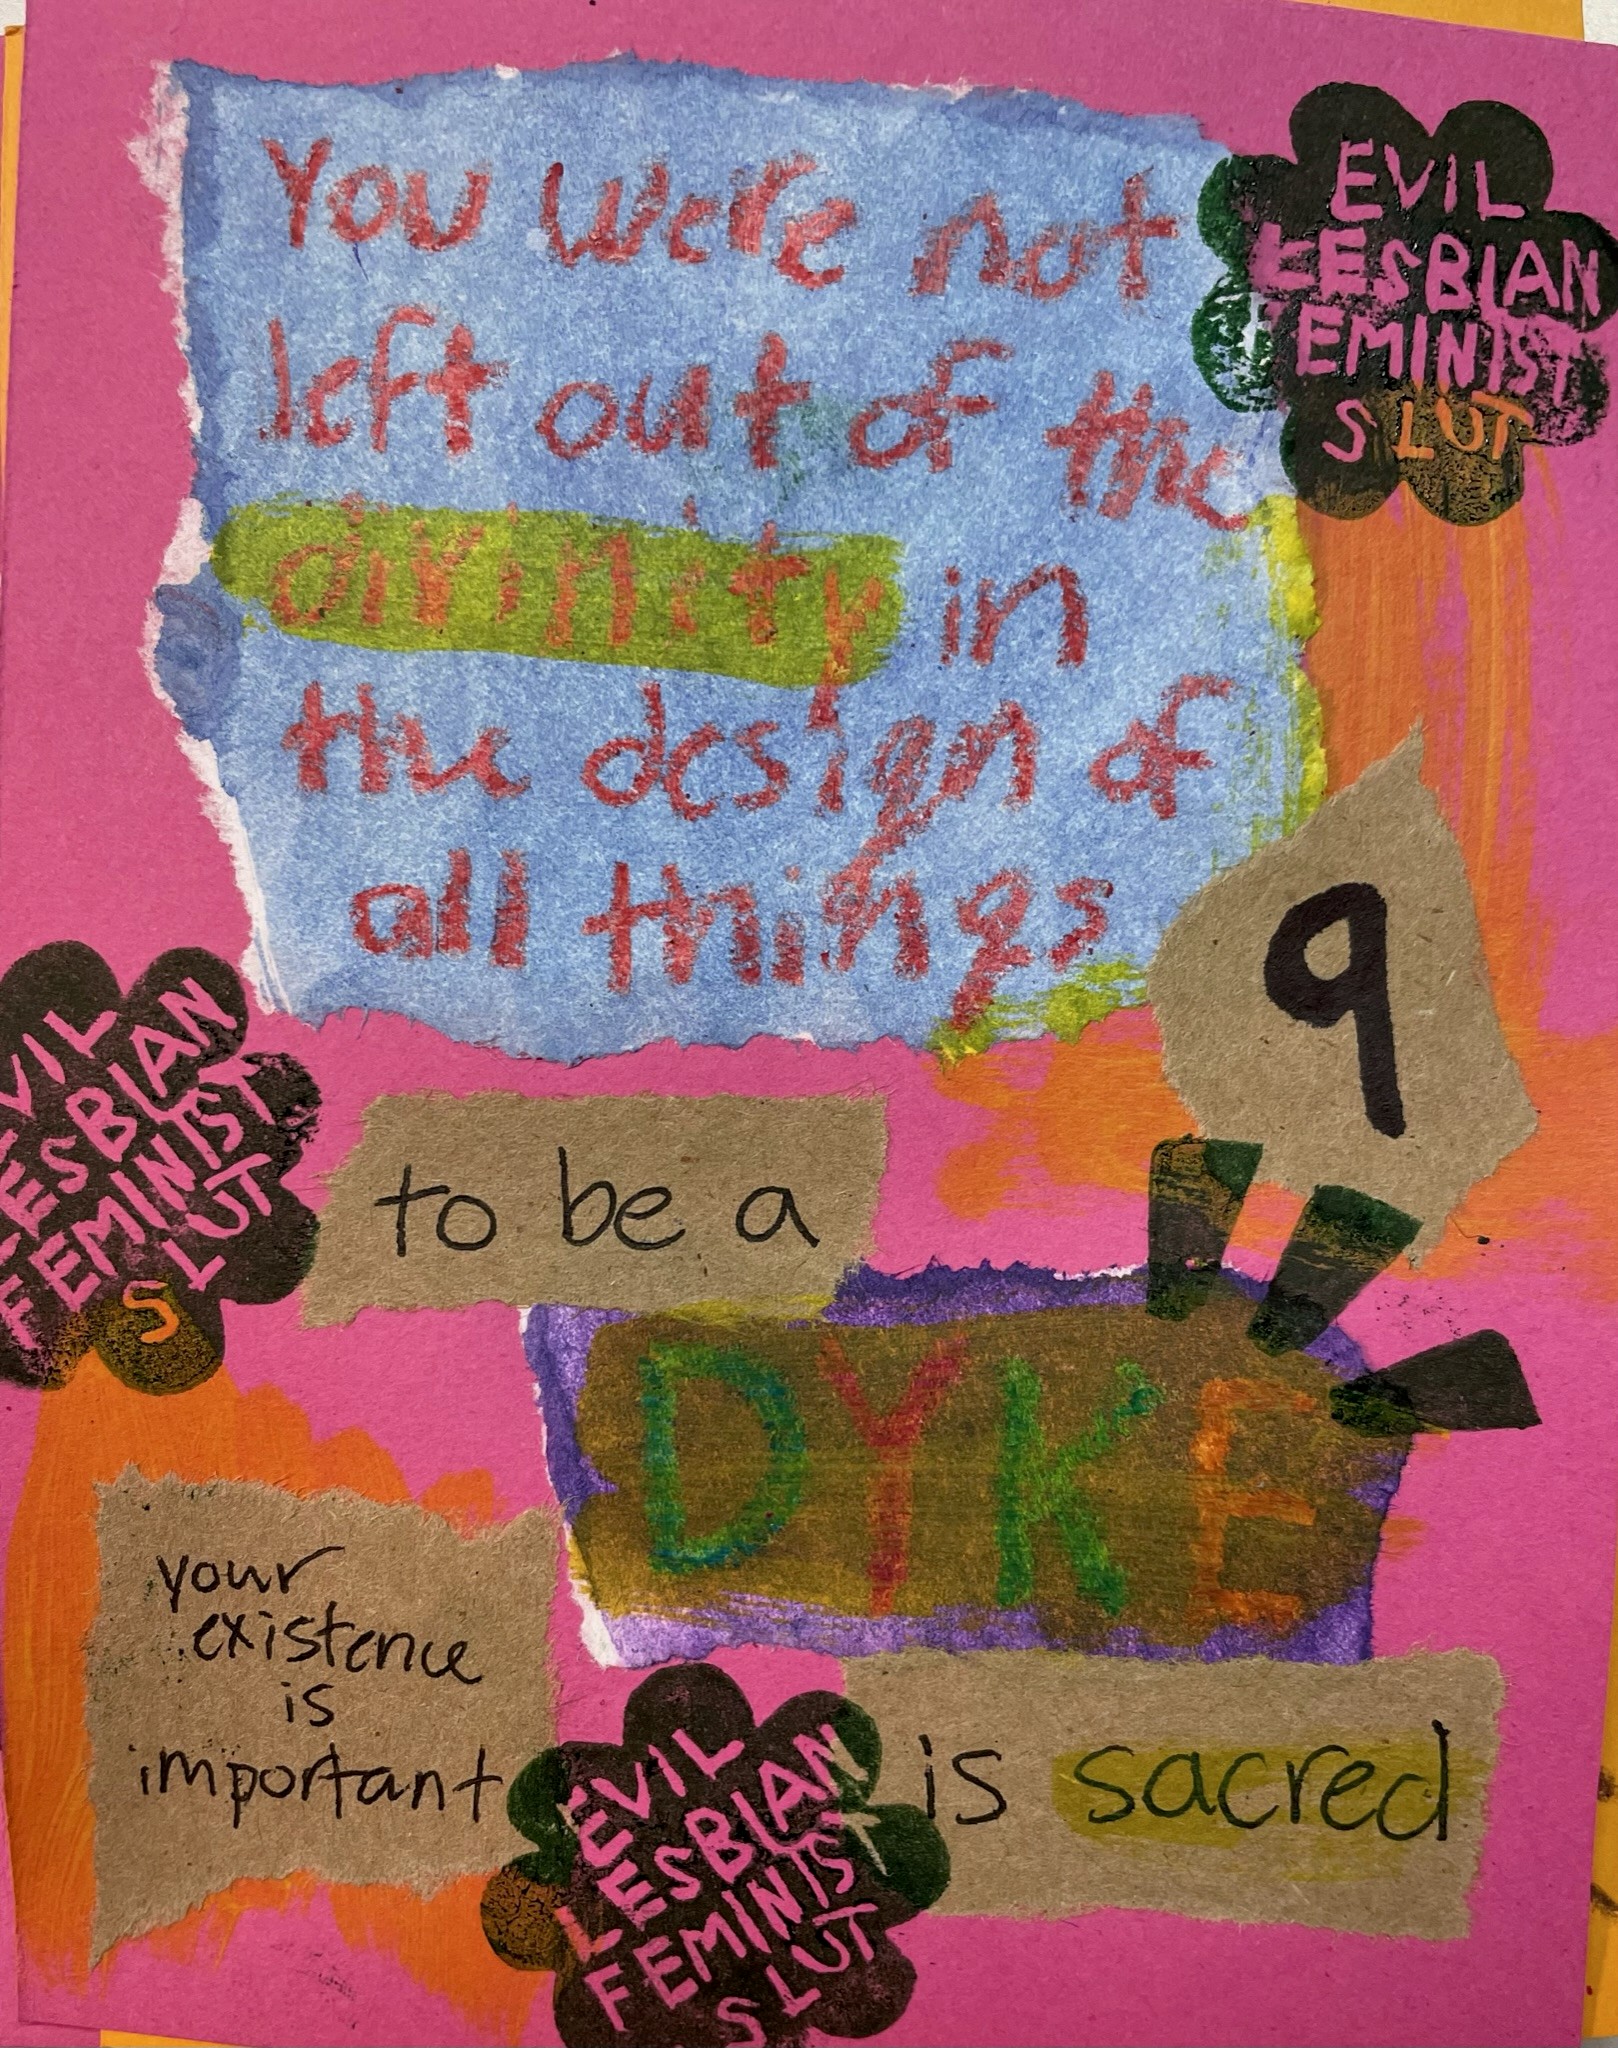 You were not
left out of the
divinity in
the design of
all things
EVIL
LESBIAN
FEMINIST
SLUT
9
EVIL
LESBIAN
FEMINIST
SLUT
to be a
DYKE
is sacred
your
existence
is
important
EVIL
LESBIAN
FEMINIST
SLUT